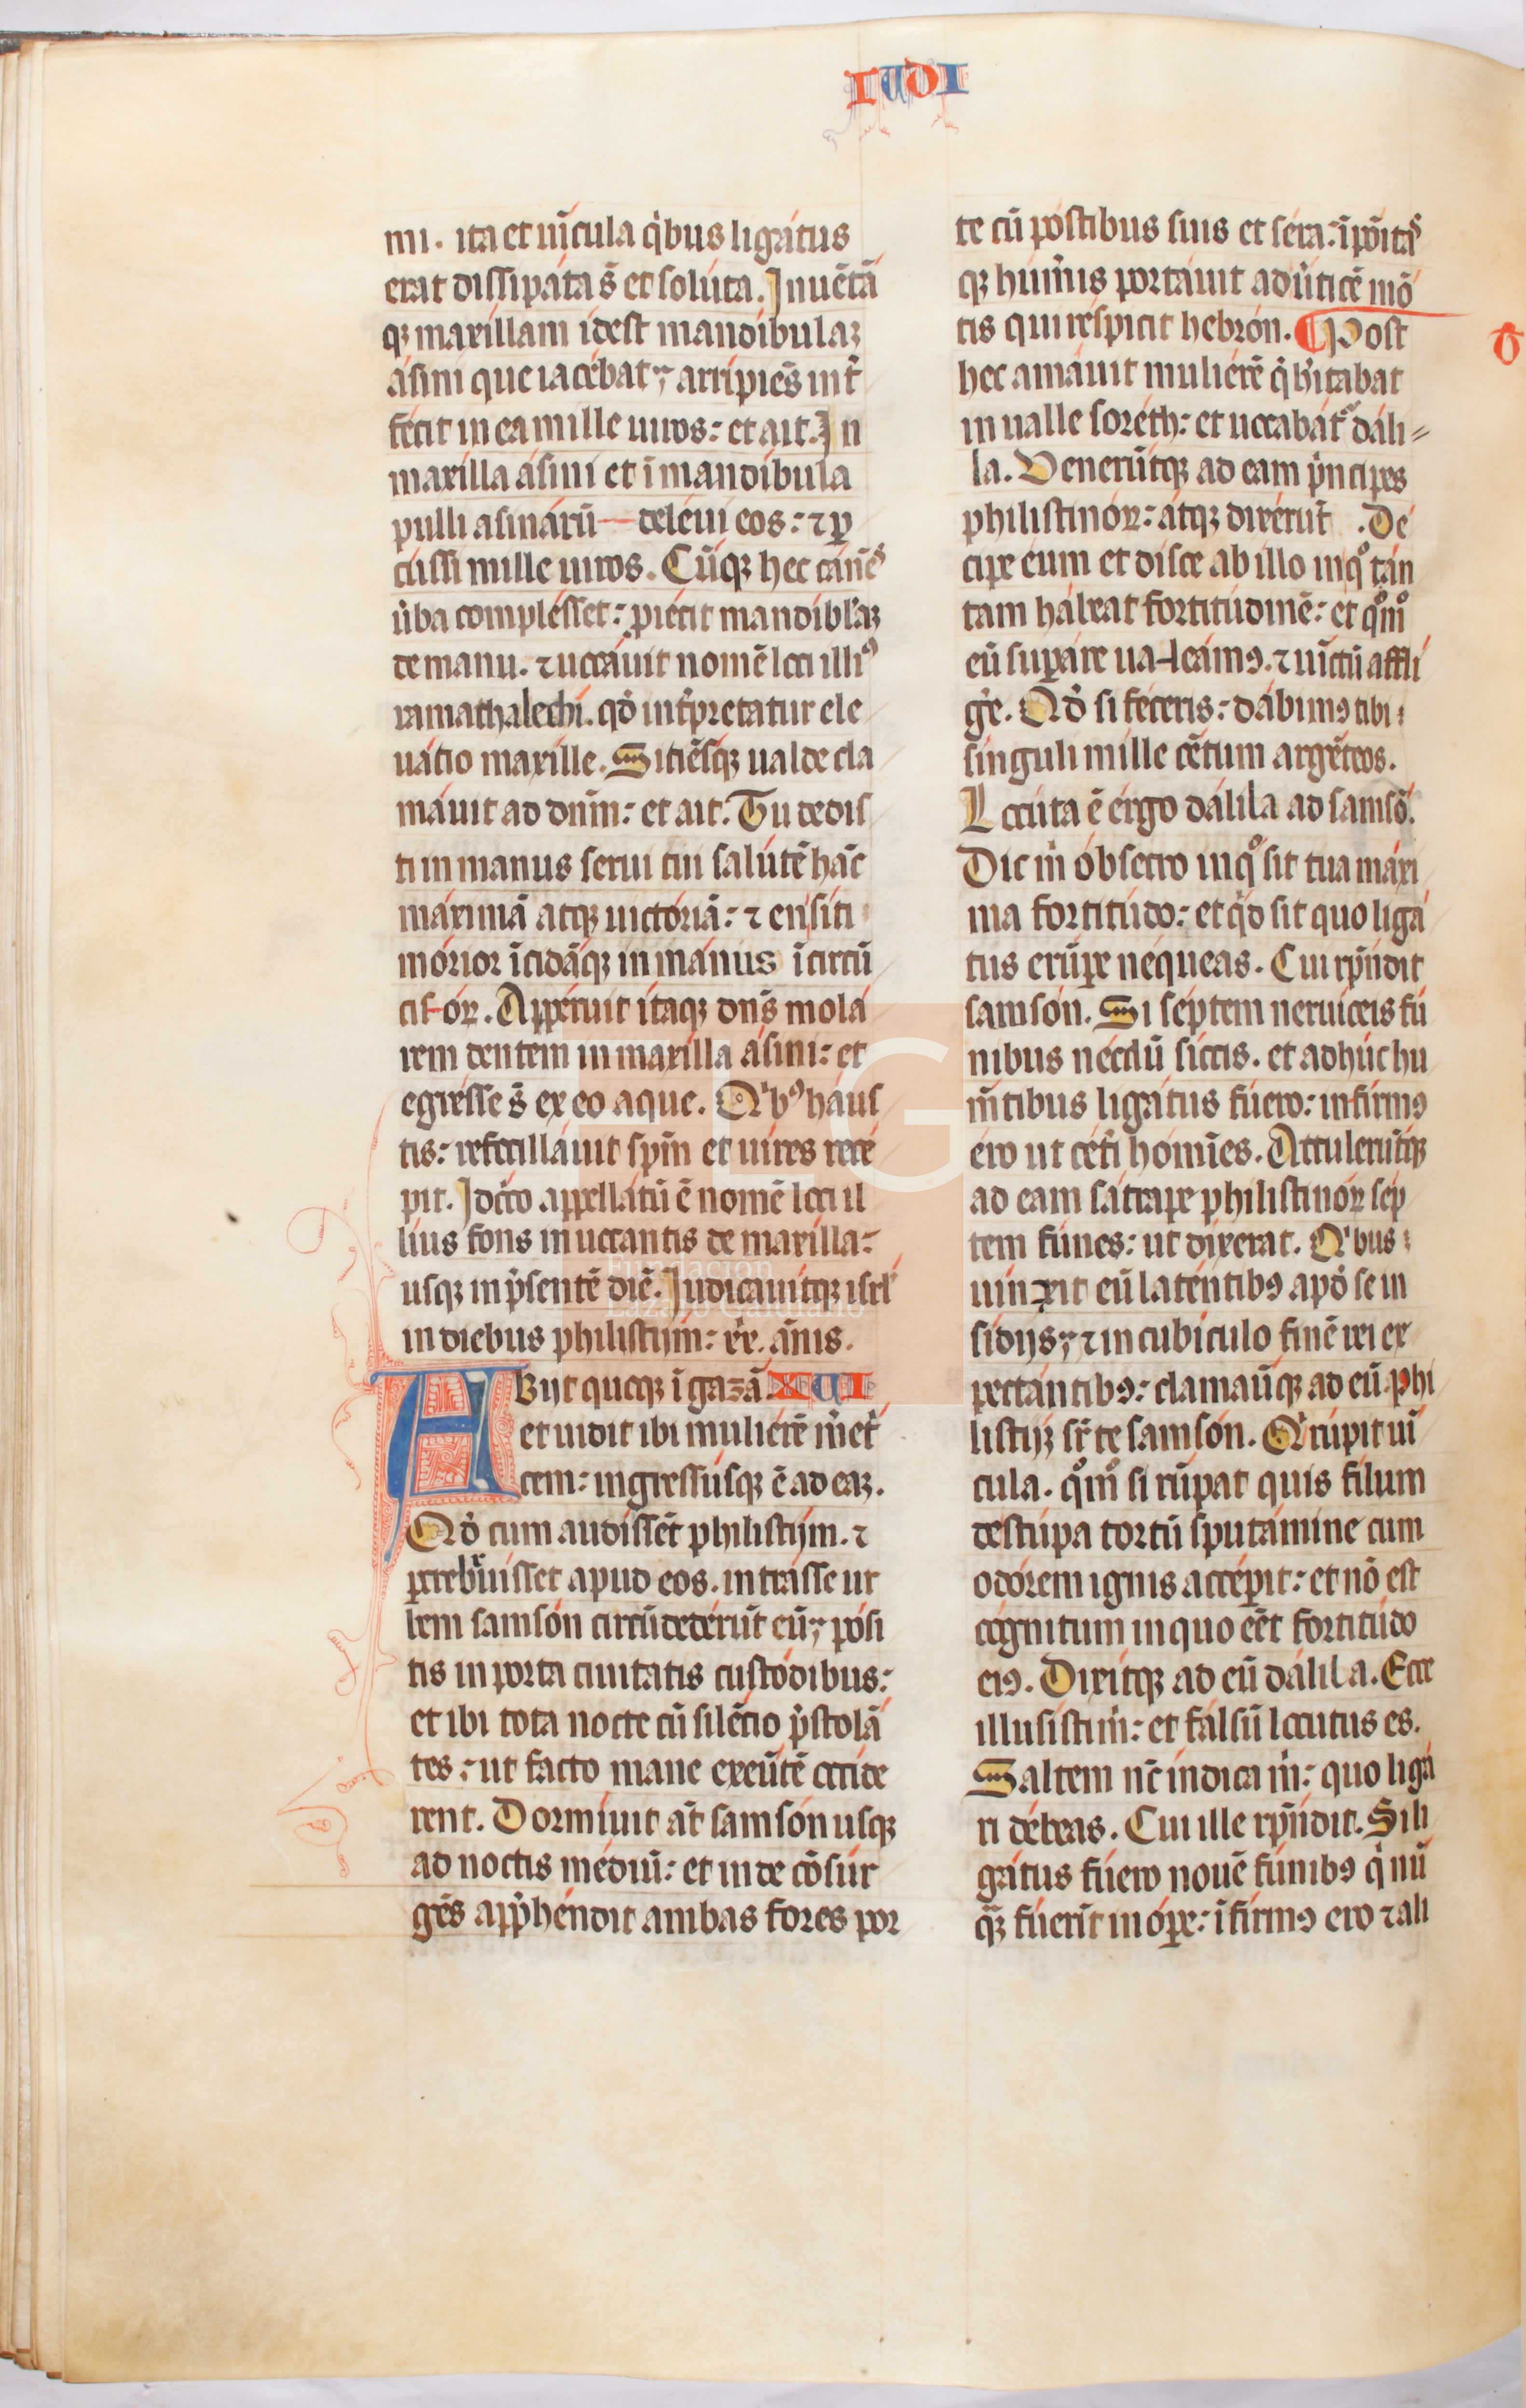 IUDI
mi. ita et uı̄cula qͥbus ligatus
erat dissipata s̄ et soluta. Inuētā
qꝫ maxillam idest mandibulaꝫ
asini que iacebat; arripiēs int̄
fecit in ea mille uiros: et ait. In
maxilla asini et ī mandibula
pulli asinarū deleui eos: ⁊ ꝑ
cussi mille uiros. Cūqꝫ hec canēs
ūba complesset: ꝓiecit mandibl̄aꝫ
de manu. ⁊ uocauit nomē loci illiꝰ
ramathalechi. qd̓ int̄pretatur ele
uatio maxille. Sitiēsqꝫ ualde cla
mauit ad dnm̄: et ait. Tu dedis
ti in manus serui tui salutē hāc
maximā atqꝫ uictoriā: ⁊ en siti
morior īcidāqꝫ in manus īcircū
cisoꝝ. Apperuit itaqꝫ dn̄s mola
rem dentem in maxilla asini: et
egresse s̄ ex eo aque. Qͥbꝰ haus
tis: refocillauit spm̄ et uires rece
pit. Idcͦco appellatū ē nomē loci il
lius fons inuocantis de maxilla:
usqꝫ in p̄sentē diē. Iudicauitqꝫ isrl̄
in diebus philistijm: xx. ānis.
ABijt quoqꝫ ī gazā XUI
et uidit ibi mulierē m̄et̄
cem: ingressusqꝫ ē ad eaꝫ.
Qd̓ cum audissēt philistijm. ⁊
ꝑcrebͬuisset apud eos. intrasse ur
bem samson circūdederūt eū; posi
tis in porta ciuitatis custodibus:
et ibi tota nocte cū silētio p̄stolā
tes: ut facto mane exeūtē occide
rent. Dormiuit āt samson usqꝫ
ad noctis mediū: et inde cōsur
gēs app̄hendit ambas fores por
te cū postibus suis et sera: īpōitāsͥ
qꝫ hum̄is portauit ad ūticē mō
tis qui respicit hebron. ¶ Post
D
hec amauit mulierē q̄ hītabat
in ualle soreth: et uocabat᷑ dali
la. Venerūtqꝫ ad eam pͥncipes
philistinoꝝ: atqꝫ dixerūt. De
cipe eum et disce ab illo in qͦ tan
tam habeat fortitudinē: et qͦmͦ
eū suꝑare ualeamꝰ. ⁊ uīctū affli
ge̓. Qd̓ si feceris: dabimꝰ tibi
singuli mille cētum argēteos.
Locuta ē ergo dalila ad samsō.
Dic m̄ obsecro in qͦ sit tua maxi
ma fortitudo: et qͥd sit quo liga
tus erūꝑe nequeas. Cui rn̄dit
samson. Si septem neruiceis fu
nibus necdū siccis. et adhuc hu
m̄tibus ligatus fuero: infirmꝰ
ero ut cet̄i homīes. Attulerūtqꝫ
ad eam satrape philistinoꝝ sep
tem funes: ut dixerat. Qͥbus
uinxit eū latentibꝰ apd̓ se in
sidijs; ⁊ in cubiculo finē rei ex
pectantibꝰ: clamauı̄tqꝫ ad eū. phi
listijꝫ sr̄ te samson. Qͥ rupit uı̄
cula. qͦmͦ si rūpat quis filum
de stupa tortū sputamine cum
odorem ignis acceperit: et nō est
cognitum in quo eēt fortitudo
eiꝰ. Dixitqꝫ ad eū dalila. Ecce
illusisti m̄: et falsū locutus es.
Saltem nc̄ indica m̄: quo liga
ri debeas. Cui ille rn̄dit. Si li
gatus fuero nouē funibꝰ qͥ nū
qꝫ̄ fuerīt in oꝑe: īfirmꝰ ero ⁊ ali